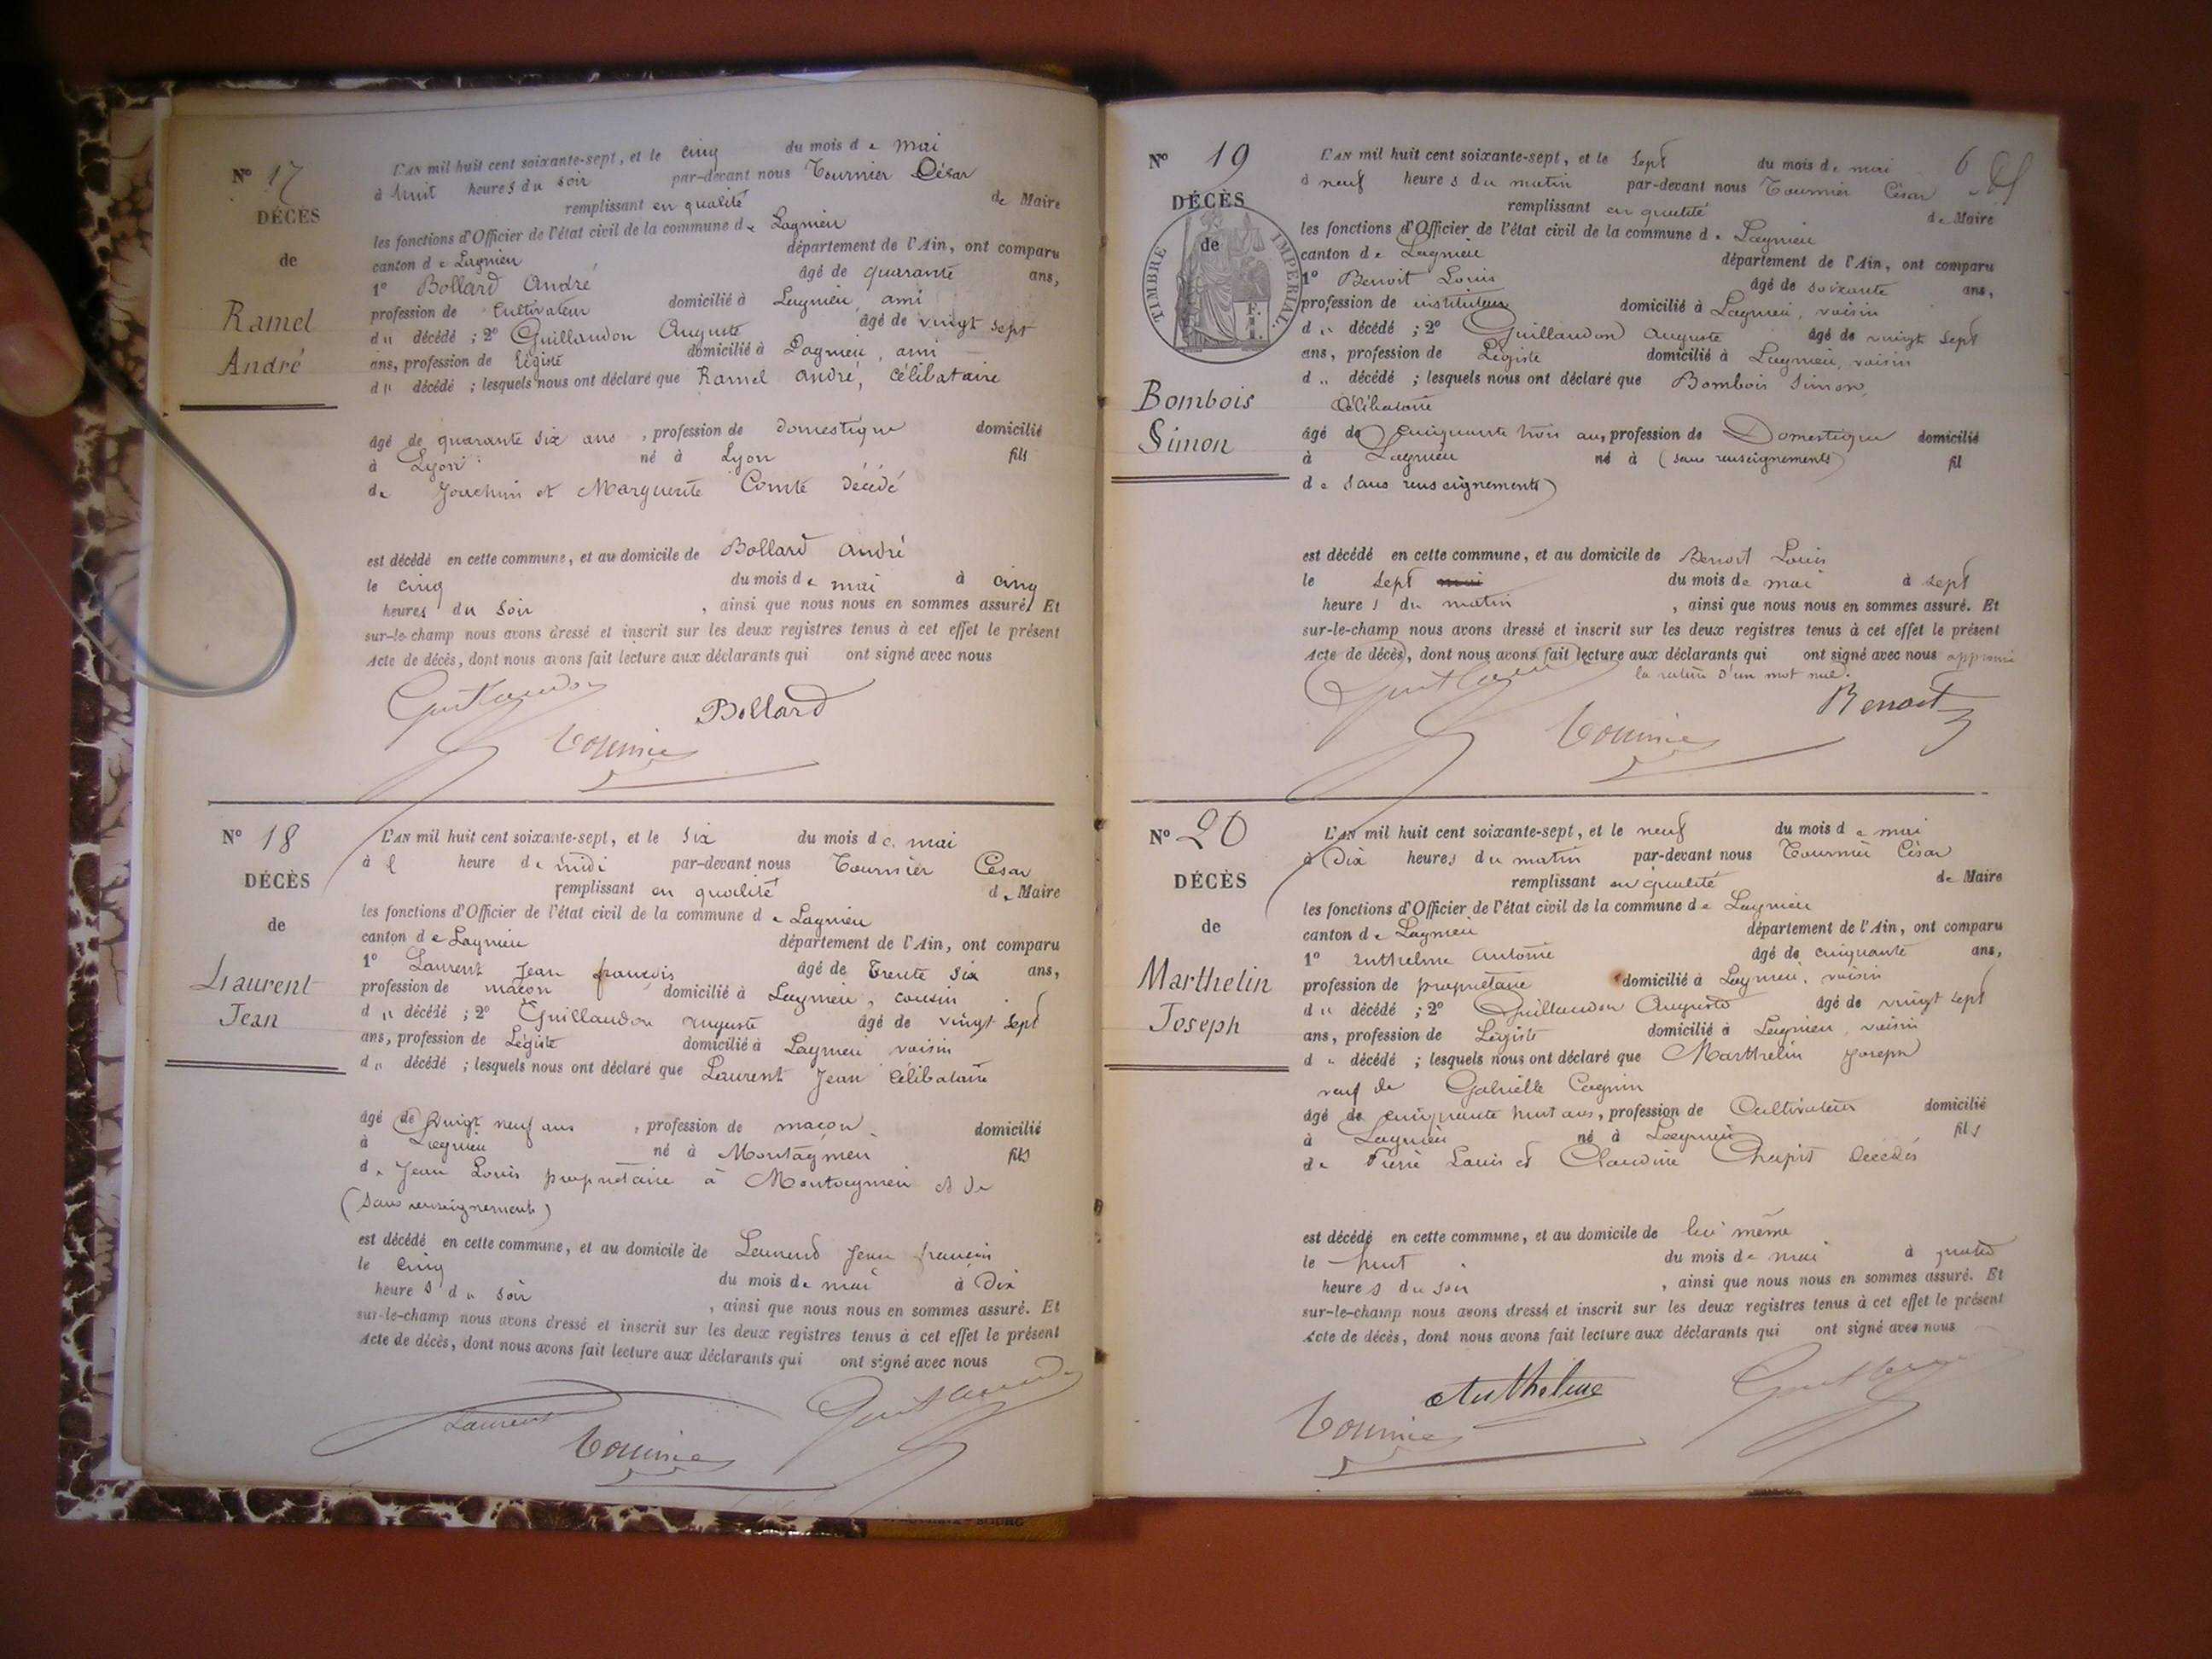 N° 17
DÉCÈS
de
Ramel
André
L'AN mil huit cent soixante-sept, et le cinq du mois de mai
à huit heures du soir par-devant nous Tournier César
remplissant en qualité de Maire
les fonctions d'Officier de l'état civil de la commune de Lagnieu
canton de Lagnieu département de l'Ain, ont comparu
1° Bollard André âgé de quarante ans,
profession de Cultivateur domicilié à Lagnieu, ami
du décédé ; 2° Guillaudon Auguste âgé de vingt sept
ans, profession de Légiste domicilié à Lagnieu, ami
du décédé ; lesquels nous ont déclaré que Ramel André, Célibataire
âgé de quarante six ans, profession de Domestique domicilié
à Lyon né à Lyon fils
de Joachim et Marguerite Comte Décédé
est décédé en cette commune, et au domicile de Bollard André
le cinq du mois de mai à cinq
heures du soir, ainsi que nous nous en sommes assuré. Et
sur-le-champ nous avons dressé et inscrit sur les deux registres tenus à cet effet le présent
Acte de décès, dont nous avons fait lecture aux déclarants qui ont signé avec nous
Guillaudon
Bollard
Tournier
N° 18
DÉCÈS
de
Laurent
Jean
L'AN mil huit cent soixante-sept, et le six du mois de mai
à l heure de midi par-devant nous Tournier César
remplissant en qualité de Maire
les fonctions d'Officier de l'état civil de la commune de Lagnieu
canton de Lagnieu département de l'Ain, ont comparu
1° Laurent Jean françois âgé de Trente six ans,
profession de maçon domicilié à Lagnieu, cousin
du décédé ; 2° Guillaudon Auguste âgé de vingt sept
ans, profession de Légiste domicilié à Lagnieu voisin
du décédé ; lesquels nous ont déclaré que Laurent Jean Célibataire
âgé de Vingt neuf ans, profession de maçon domicilié
à Lagnieu né à Montagnieu fils
de Jean Louis propriétaire à Montagnieu et de
(sans renseignements)
est décédé en cette commune, et au domicile de Laurent Jean françois
le cinq du mois de mai à Dix
heures du soir, ainsi que nous nous en sommes assuré. Et
sur-le-champ nous avons dressé et inscrit sur les deux registres tenus à cet effet le présent
Acte de décès, dont nous avons fait lecture aux déclarants qui ont signé avec nous
Laurent
Tournier
Guillaudon
N° 19
DÉCÈS
de
TIMBRE IMPERIAL.
Bombois
Simon
6
L'AN mil huit cent soixante-sept, et le sept du mois de mai
à neuf heures du matin par-devant nous Tournier César
remplissant en qualité de Maire
les fonctions d'Officier de l'état civil de la commune de Lagnieu
canton de Lagnieu département de l'Ain, ont comparu
1° Benoit Louis âgé de soixante ans,
profession de instituteur domicilié à Lagnieu, voisin
du décédé ; 2° Guillaudon Auguste âgé de vingt sept
ans, profession de Légiste domicilié à Lagnieu, voisin
du décédé ; lesquels nous ont déclaré que Bombois Simon,
Célibataire
âgé de cinquante trois ans, profession de Domestique domicilié
à Lagnieu né à (sans renseignements) fil
de sans renseignements)
est décédé en cette commune, et au domicile de Benoit Louis
le sept mai du mois de mai à sept
heures du matin, ainsi que nous nous en sommes assuré. Et
sur-le-champ nous avons dressé et inscrit sur les deux registres tenus à cet effet le présent
Acte de décès, dont nous avons fait lecture aux déclarants qui ont signé avec nous approuvé
la rature d'un mot nul.
Guillaudon
Benoit
Tournier
N° 20
DÉCÈS
de
Marthelin
Joseph
L'AN mil huit cent soixante-sept, et le neuf du mois de mai
à Dix heures du matin par-devant nous Tournier César
remplissant en qualité de Maire
les fonctions d'Officier de l'état civil de la commune de Lagnieu
canton de Lagnieu département de l'Ain, ont comparu
1° Anthelme Antoine âgé de cinquante ans,
profession de propriétaire domicilié à Lagnieu, voisin
du décédé ; 2° Guillaudon Auguste âgé de vingt sept
ans, profession de Légiste domicilié à Lagnieu, voisin
du décédé ; lesquels nous ont déclaré que Marthelin Joseph
veuf de Gabrielle Cagnin
âgé de cinquante huit ans, profession de Cultivateur domicilié
à Lagnieu né à Lagnieu fils
de Pierre Louis et Claudine Chapit Décédés
est décédé en cette commune, et au domicile de lui même
le huit du mois de mai à quatre
heures du soir, ainsi que nous nous en sommes assuré. Et
sur-le-champ nous avons dressé et inscrit sur les deux registres tenus à cet effet le présent
Acte de décès, dont nous avons fait lecture aux déclarants qui ont signé avec nous
Anthelme
Guillaudon
Tournier